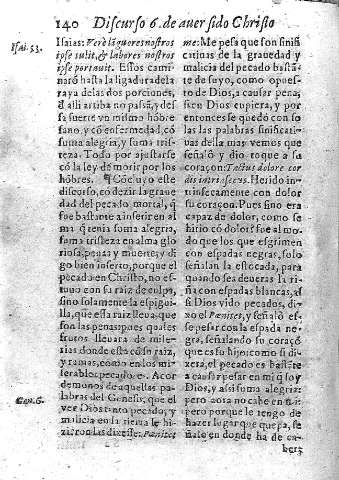 140 Discurso 6. de aver sido Christo
Isai. 53.
Isaias: Verè lãguores nostros
ipse tulit, & labores nostros
ipse portauit. Estos cami
narõ hasta la ligadura de la
raya de las dos porciones,
q̃ alli arriba no passã, y des
sa suerte vn mismo hõbre
sano, y cõ enfermedad, cõ
suma alegria, y suma tris-
teza. Todo por ajustarse
cõ la ley de morir por los
hõbres. ¶ Cõcluyo este
discurso, cõ dezir la graue
dad del pecado mortal, q̃
fue bastante a inserir en al
ma q̃ tenia suma alegria,
suma tristeza en alma glo
riosa, penas y muerte; y di
go bien inserto, porque el
pecado en Christo, no es-
tuuo con su raiz de culpa,
sino solamente la espigui-
lla, que esta raiz lleua que
son las penas: pues quales
frutos lleuara de mise-
rias donde està cõ su raiz,
y ramas, como en los mi-
serables pecadores. Acor
demonos de aquellas pa-
labras del Genesis, que el
ver Dios tanto pecado, y
malicia en la tierra le hi-
zieron las dixesse: Pœnitet
Gen. 6.
me: Me pesa que son sinifi
catiuas de la grauedad y
malicia del pecado bastã
te de suyo, como opues-
to de Dios, a causar pena,
si en Dios cupiera, y por
entonces se quedò con so
las las palabras sinificati-
uas della mas vemos que
señalò y dio toque a su
coraçon: Tactus dolore cor
dis intrinsecus. Herido in-
trinsecamente con dolor
su coraçon. Pues sino era
capaz de dolor, como se
hirio cõ dolor? fue al mo-
do que los que esgrimen
con espadas negras, solo
señalan la estocada, para
quando sea de veras la ri-
ña con espadas blancas, as
si Dios vido pecados, di-
xo el Pœnitet, y señalò el-
se pesar con la espada ne
gra, señalando su coraçõ
que es su hijo: como si di
xera, el pecado es bastãte
a causar pesar en mi q̃ soy
Dios, y assi suma alegria:
pero aora no cabe en mi:
pero porque le tengo de
hazer lugar que quepa, se
ñalo en donde ha de ca-
ber: